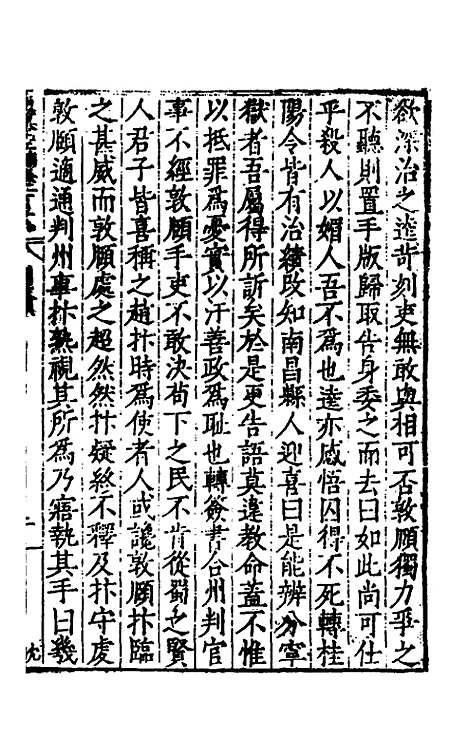 欲深治之逵苛刻吏無敢與相可否敦頤獨力爭之
不聽則置手版歸取告身委之而去曰如此尚可仕
乎殺人以媚人吾不為也逵亦感悟囚得不死轉桂
陽令皆有治績改知南昌縣人迎喜曰是能辨分寧
獄者吾屬得所訴矣於是更告語莫違教命蓋不惟
以抵罪為憂實以汙善政為恥也轉簽書合州判官
事不經敦頤手吏不敢決苟下之民不肯從蜀之賢
人君子皆喜稱之趙抃時為使者人或讒敦頤抃臨
之甚威而敦頤處之超然然抃疑終不釋及抃守虔
敦頤適通判州事抃熟視其所為乃寤執其手曰幾